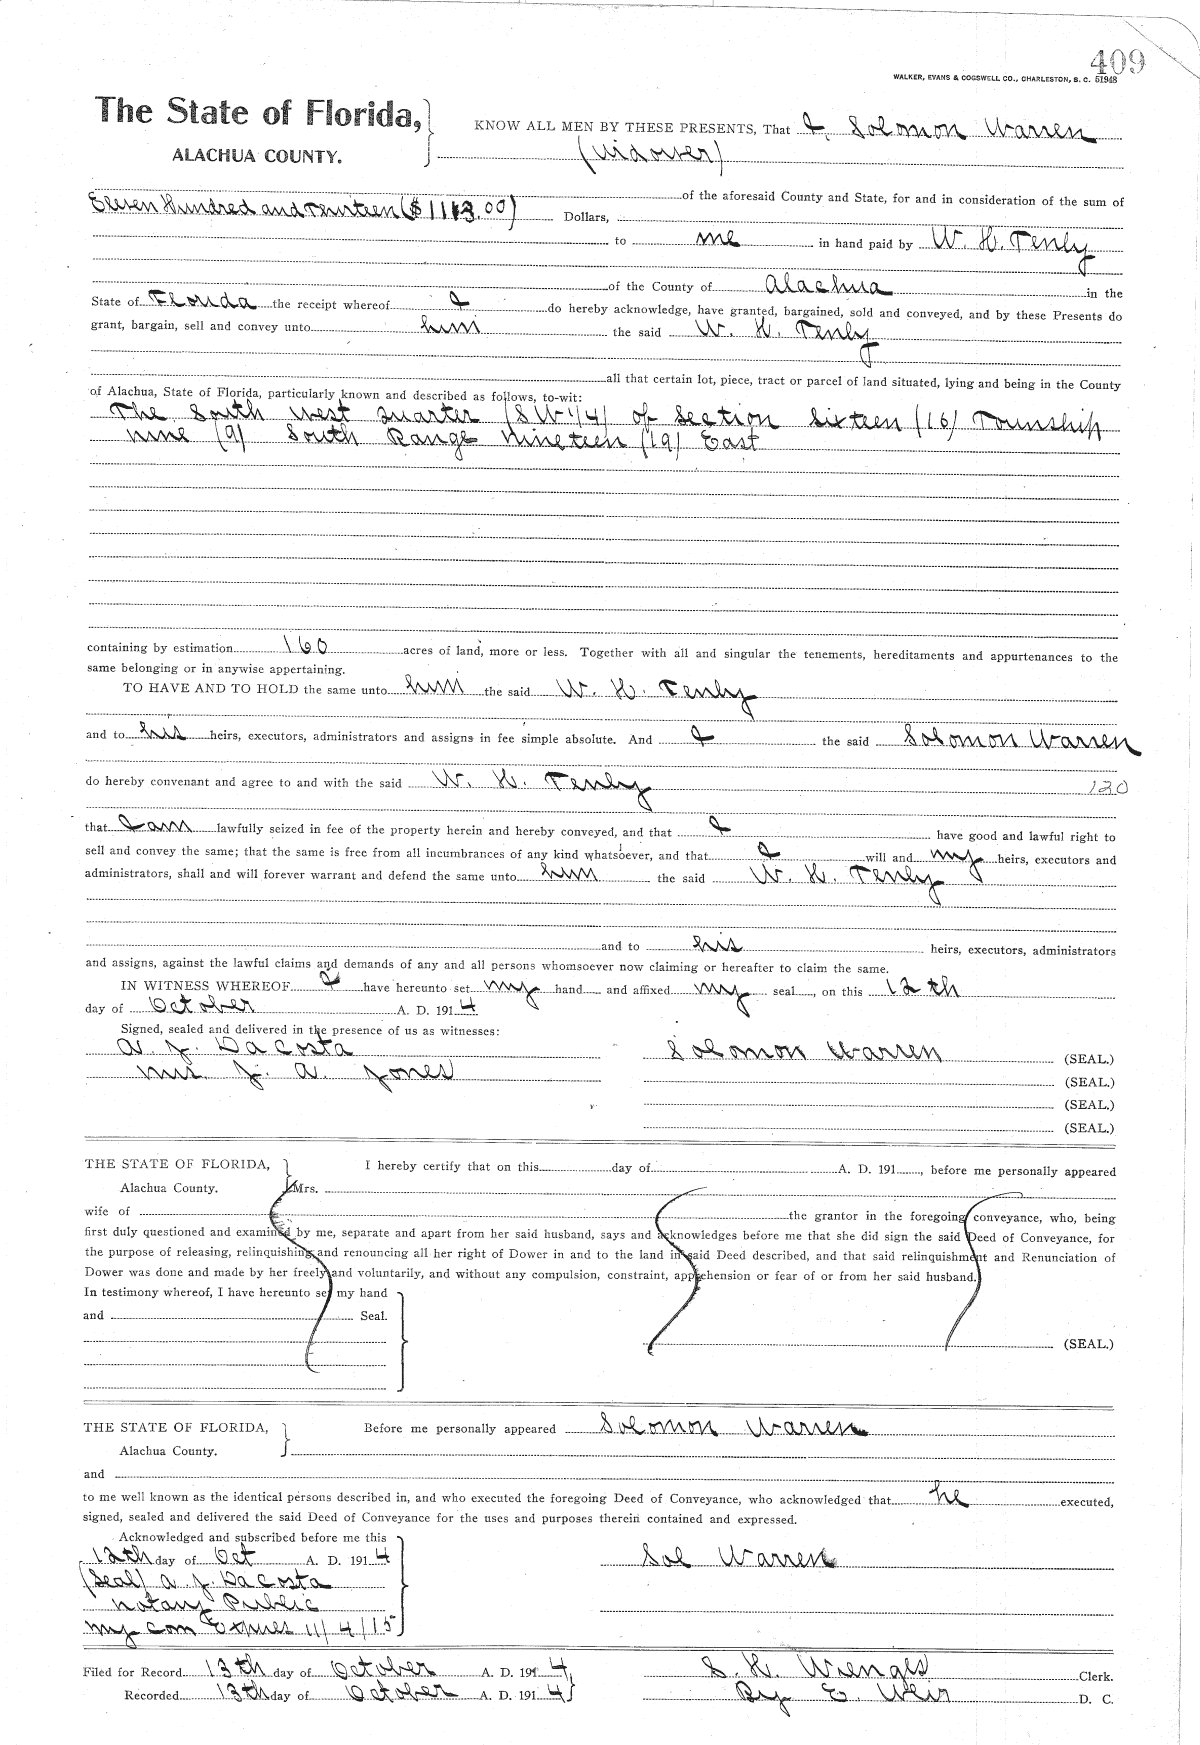 409
WALKER, EVANS & COGSWELL CO., CHARLESTON, S. C. 51948
The State of Florida,
ALACHUA COUNTY.
KNOW ALL MEN BY THESE PRESENTS, That I, Solomon Warren
(Widower)
of the aforesaid County and State, for and in consideration of the sum of
Eleven Hundred and Thirteen ($1113.00) Dollars,
to me in hand paid by W. H. Tenly
of the County of Alachua in the
State of Florida the receipt whereof I do hereby acknowledge, have granted, bargained, sold and conveyed, and by these Presents do
grant, bargain, sell and convey unto him the said W. H. Tenly
all that certain lot, piece, tract or parcel of land situated, lying and being in the County
of Alachua, State of Florida, particularly known and described as follows, to-wit:
The South West Quarter (SW 1/4) of Section Sixteen (16) Township
nine (9) South Range nineteen (19) East
containing by estimation 160 acres of land, more or less. Together with all and singular the tenements, hereditaments and appurtenances to the
same belonging or in anywise appertaining.
TO HAVE AND TO HOLD the same unto him the said W. H. Tenly
and to his heirs, executors, administrators and assigns in fee simple absolute. And I the said Solomon Warren
do hereby convenant and agree to and with the said W. H. Tenly
120
that I am lawfully seized in fee of the property herein and hereby conveyed, and that I have good and lawful right to
sell and convey the same; that the same is free from all incumbrances of any kind whatsoever, and that I will and my heirs, executors and
administrators, shall and will forever warrant and defend the same unto him the said W. H. Tenly
and to his heirs, executors, administrators
and assigns, against the lawful claims and demands of any and all persons whomsoever now claiming or hereafter to claim the same.
IN WITNESS WHEREOF I have hereunto set my hand and affixed my seal, on this 12th
day of October A. D. 1914
Signed, sealed and delivered in the presence of us as witnesses:
A. J. DaCosta
Mrs. J. A. Jones
Solomon Warren (SEAL.)
(SEAL.)
(SEAL.)
(SEAL.)
THE STATE OF FLORIDA,
Alachua County.
I hereby certify that on this day of A. D. 191 , before me personally appeared
Mrs.
wife of the grantor in the foregoing conveyance, who, being
first duly questioned and examined by me, separate and apart from her said husband, says and acknowledges before me that she did sign the said Deed of Conveyance, for
the purpose of releasing, relinquishing and renouncing all her right of Dower in and to the land in said Deed described, and that said relinquishment and Renunciation of
Dower was done and made by her freely and voluntarily, and without any compulsion, constraint, apprehension or fear of or from her said husband.
In testimony whereof, I have hereunto set my hand
and Seal.
(SEAL.)
THE STATE OF FLORIDA,
Alachua County.
Before me personally appeared Solomon Warren
and
to me well known as the identical persons described in, and who executed the foregoing Deed of Conveyance, who acknowledged that he executed,
signed, sealed and delivered the said Deed of Conveyance for the uses and purposes therein contained and expressed.
Acknowledged and subscribed before me this
12th day of Oct A. D. 1914
(Seal) A. J. DaCosta
Notary Public
My Com Expires 11/4/15
Sol Warren
Filed for Record 13th day of October A. D. 1914
Recorded 13th day of October A. D. 1914
S. H. Wienges Clerk.
By E. Weir D. C.